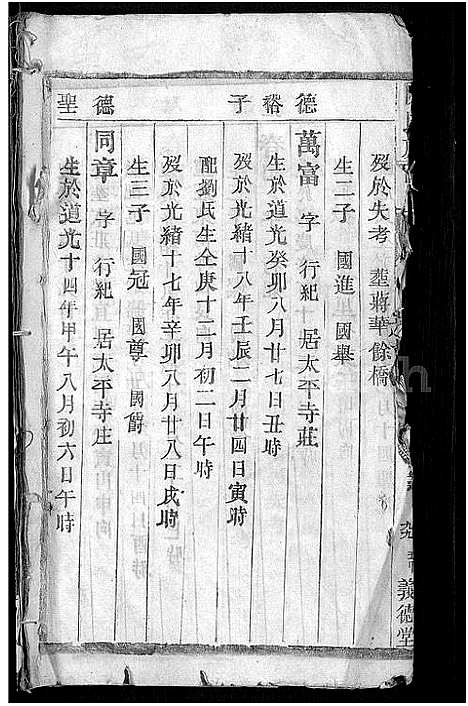 德裕子
德聖
歿於失考塟蔣華餘橋
生二子 國進 國舉
萬富 字 行紀 居太平寺莊
生於道光癸卯八月廿七日丑時
歿於光緒十八年壬辰二月廿四日寅時
配劉氏生仝庚十二月初二日午時
歿於光緒十七年辛卯八月廿八日戌時
生三子 國冠 國尊 國爵
同章 字 行紀 居太平寺庄
生於道光十四年甲午八月初六日午時
義德堂